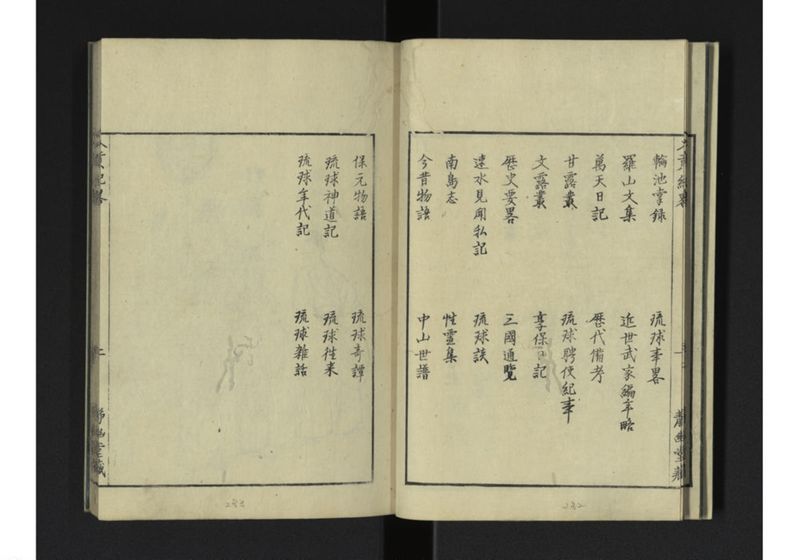 輪池掌録 琉球事畧
羅山文集 近世武家編年略
萬天日記 歴代備考
甘露叢 琉球聘使紀事
文露叢 享保日記
歴史要畧 三國通覽
遠水見聞私記 琉球談
南島志 性靈集
今昔物語 中山世譜
保元物語 琉球奇譚
琉球神道記 琉球徃来
琉球年代記 琉球雑話
二
232